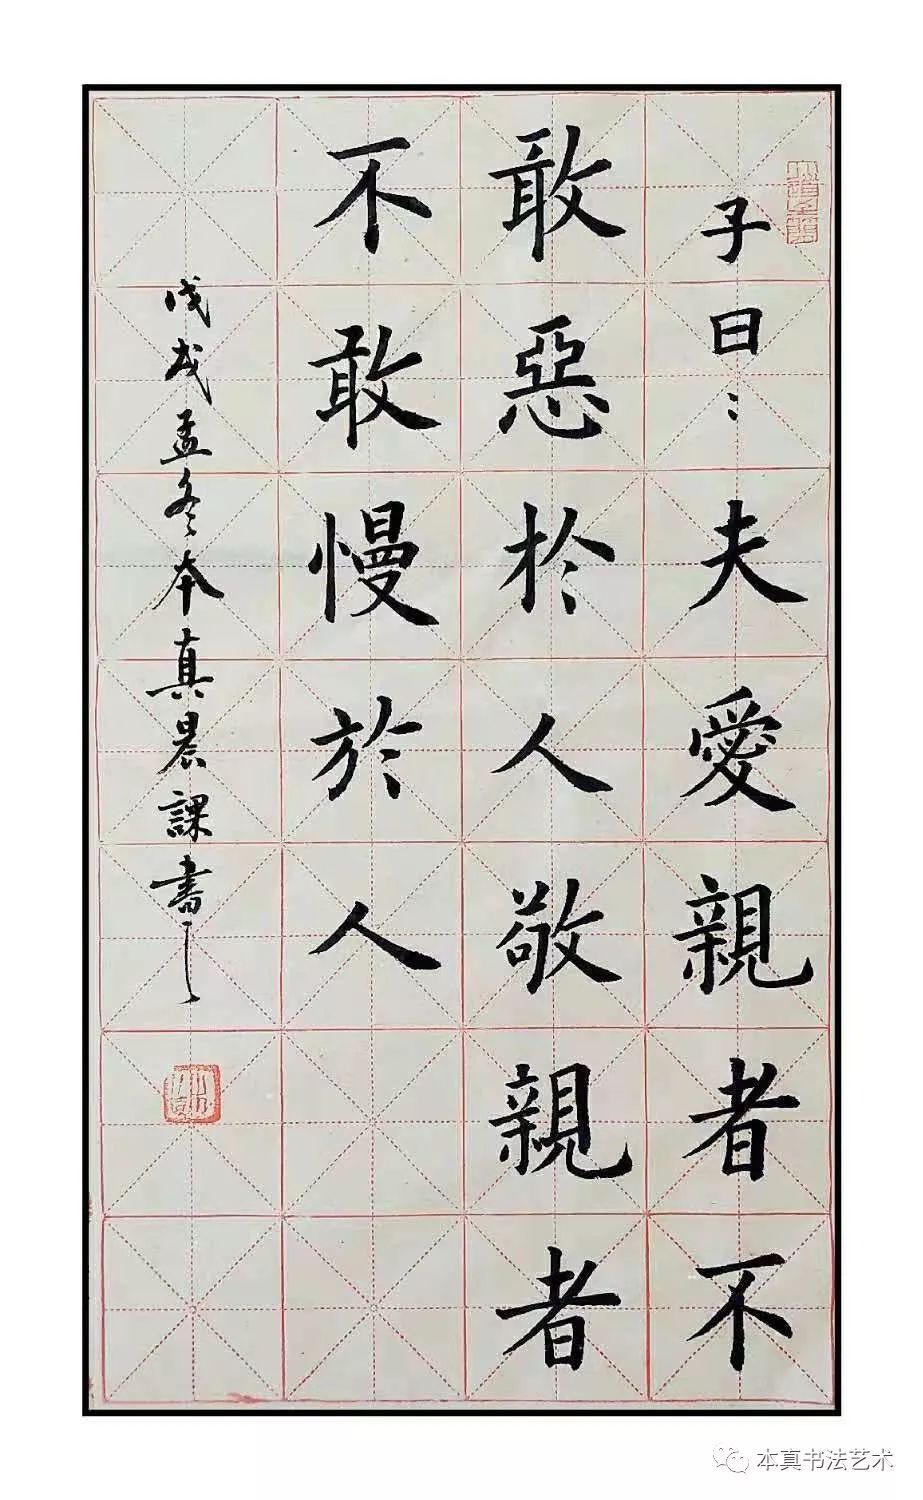 子曰：夫愛親者不
敢惡於人敬親者
不敢慢於人
戊戌孟冬本真晨課書
本真书法艺术